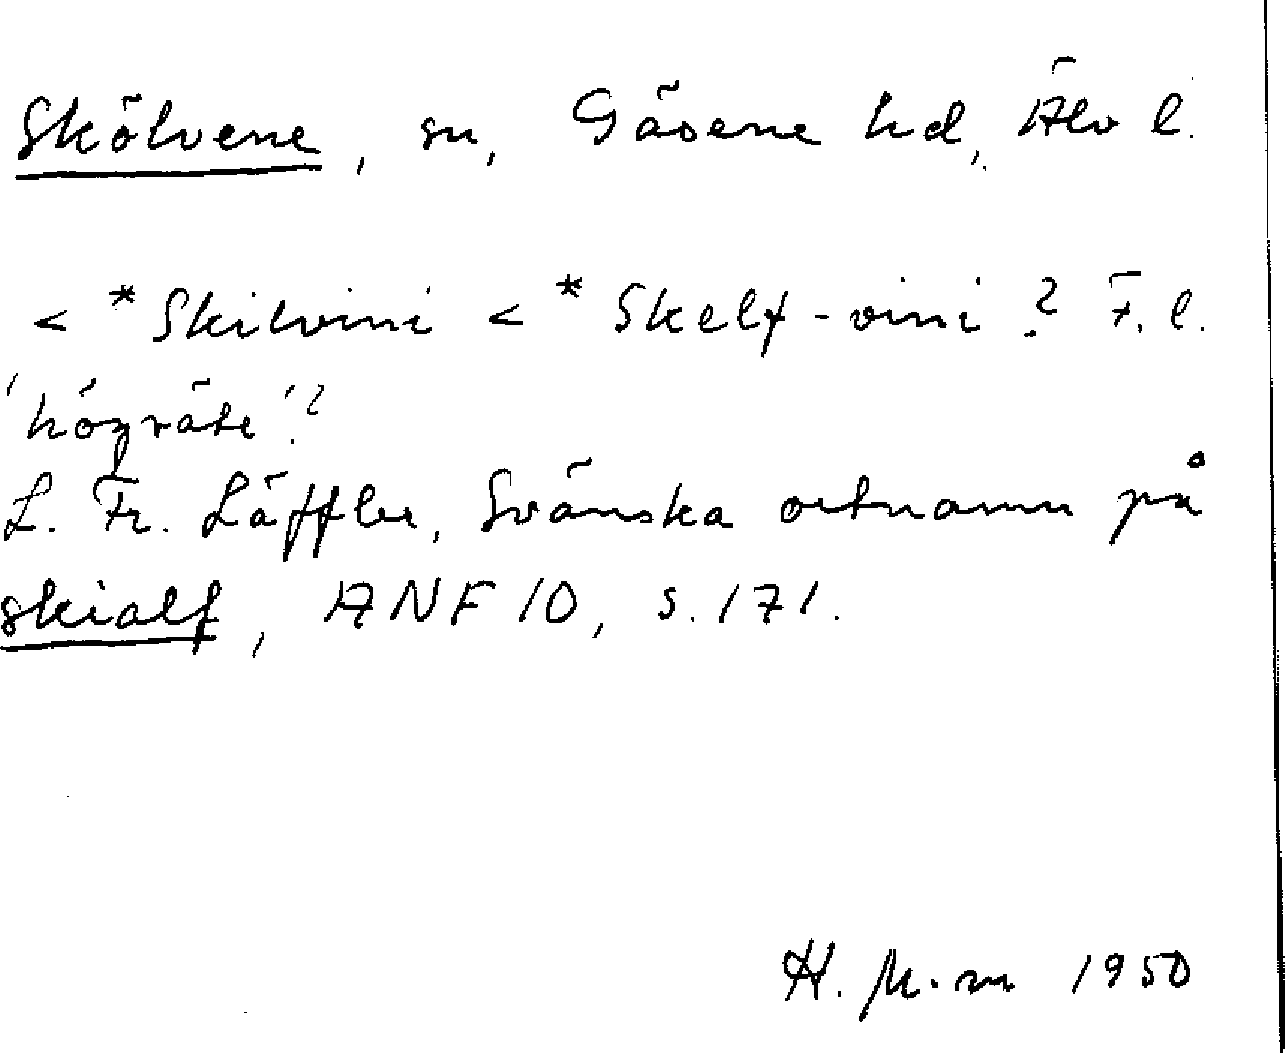 Skölvene, sn, Gäsene hd, Älv l.
< *Skilvini < *Skelf-vini? F. l.
'högräte'?
L. Fr. Läffler, Svänska ortnamn på
skialf, ANF 10, s. 171.
H. M.m 1950